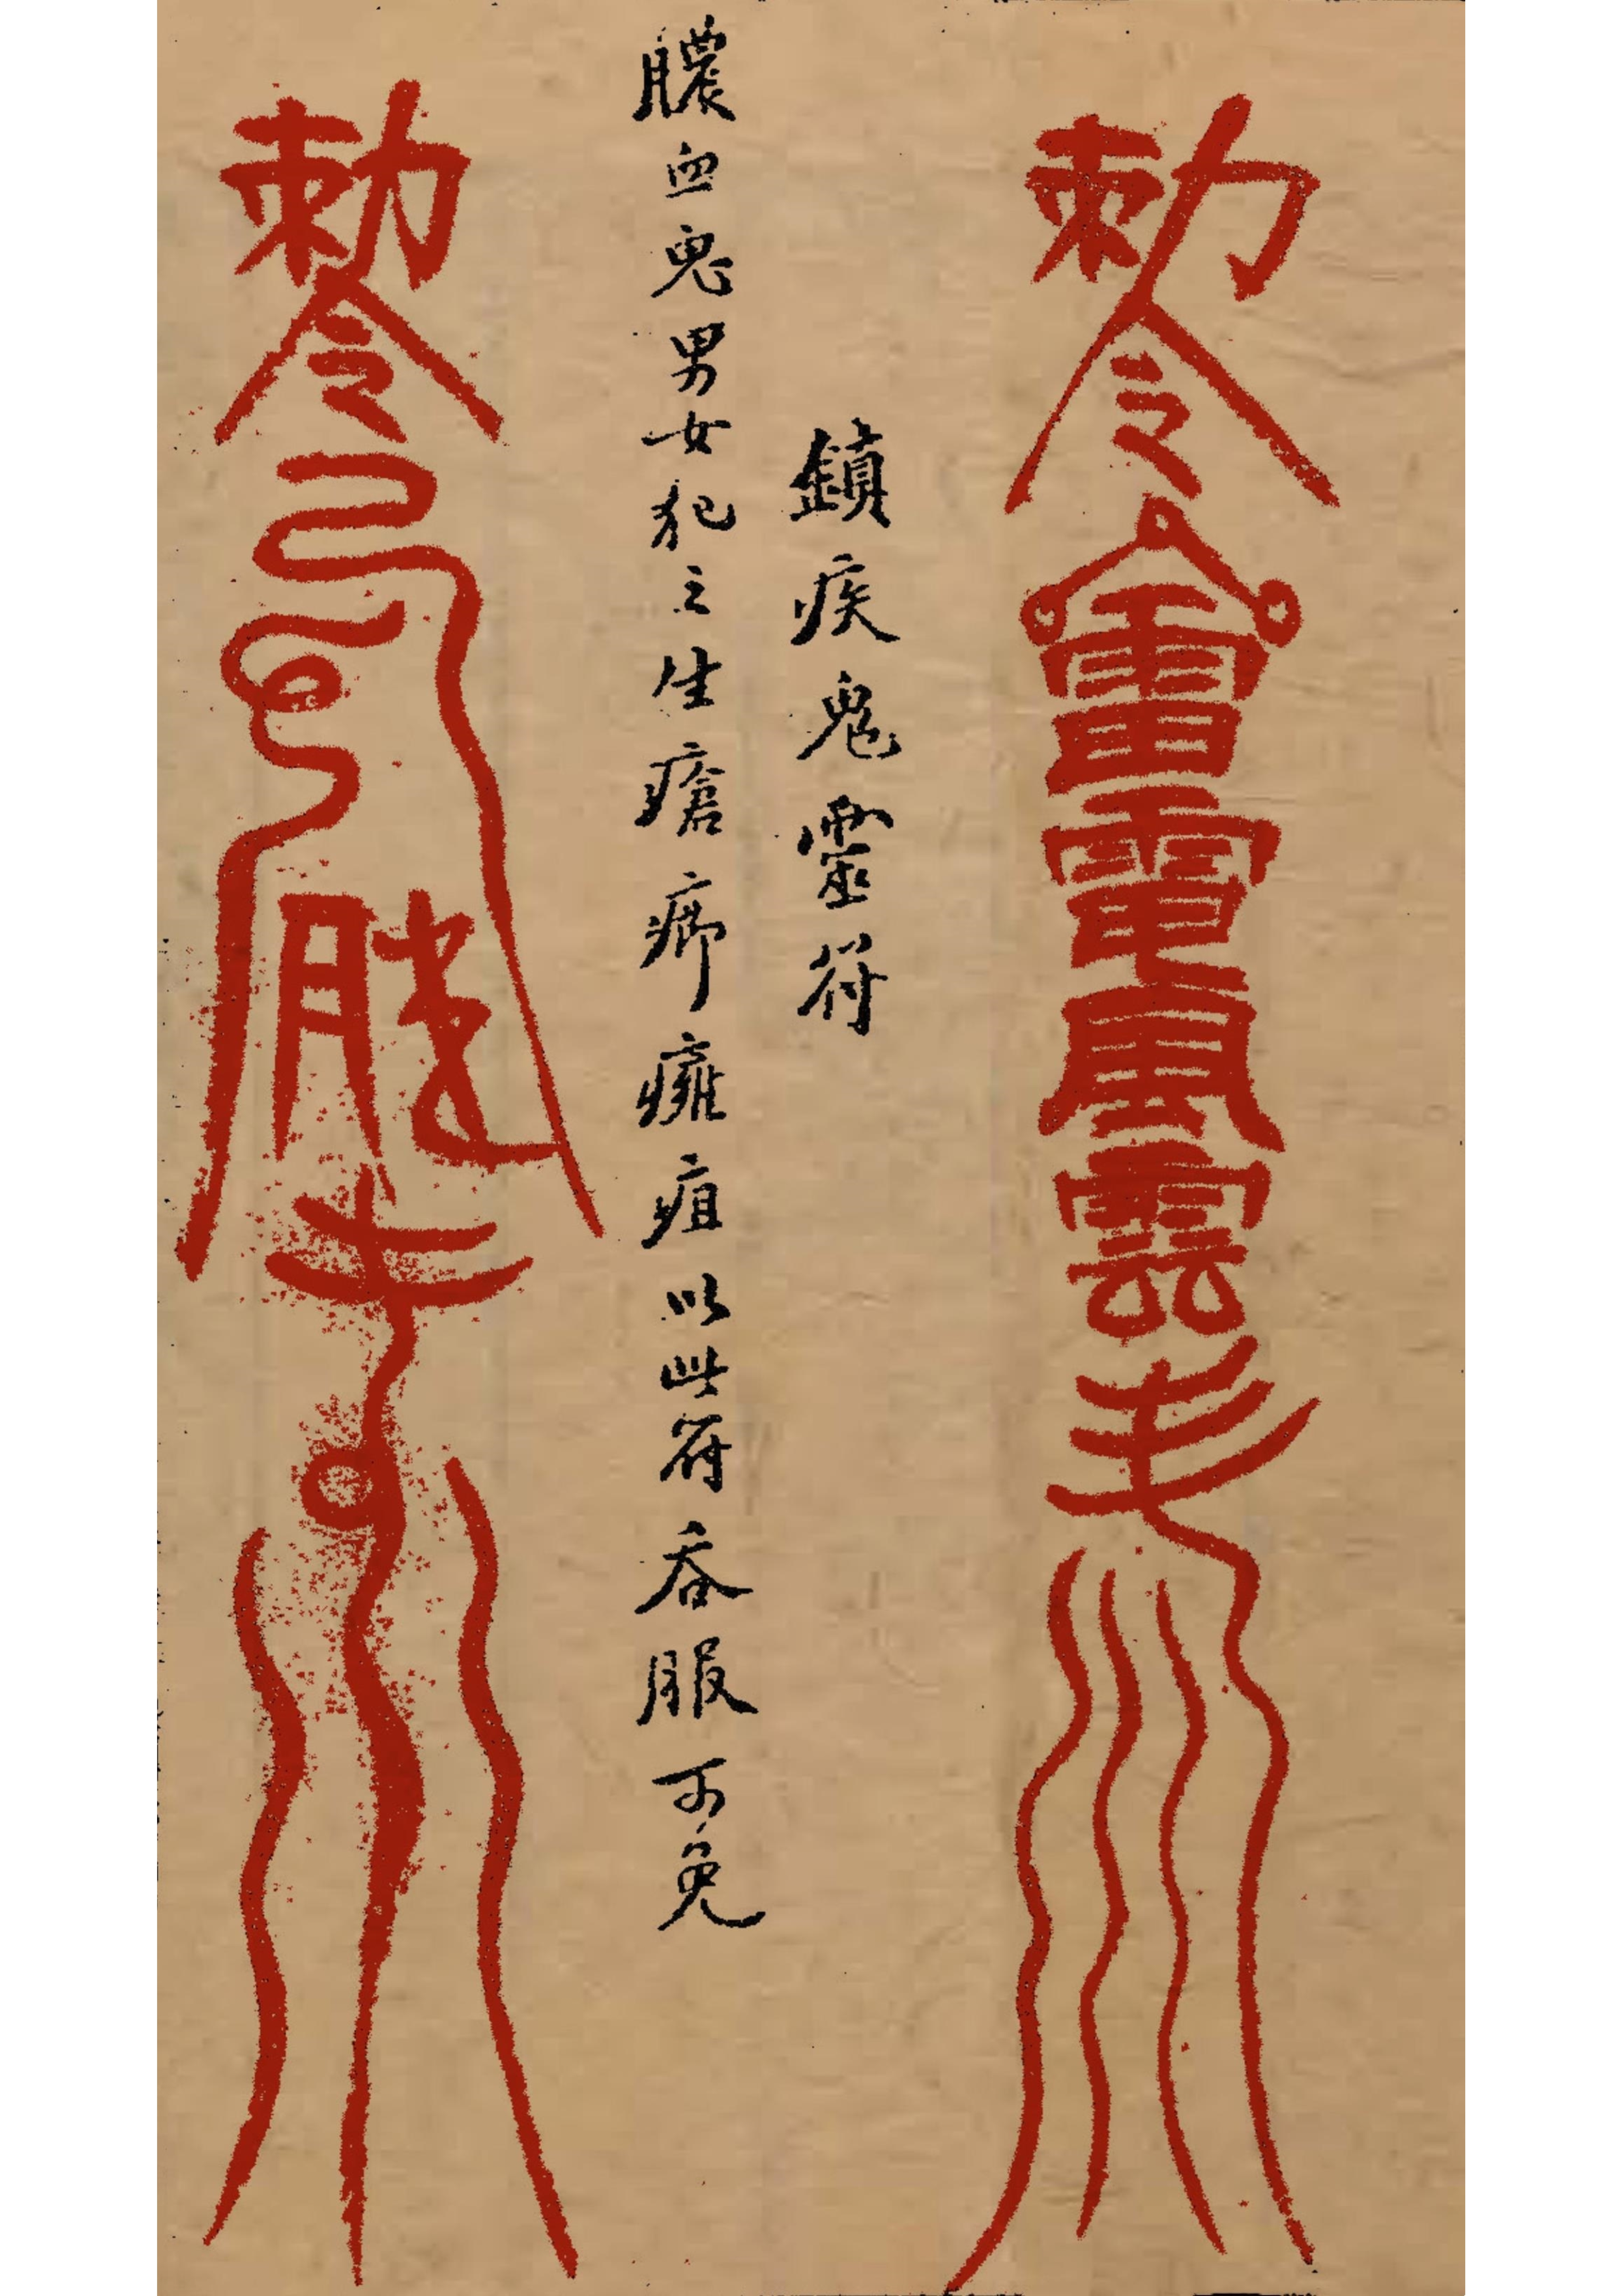 勅令雷電
鎮疾鬼靈符
膿血鬼男女犯之生瘡癤癰疽以此符吞服可免
勅令